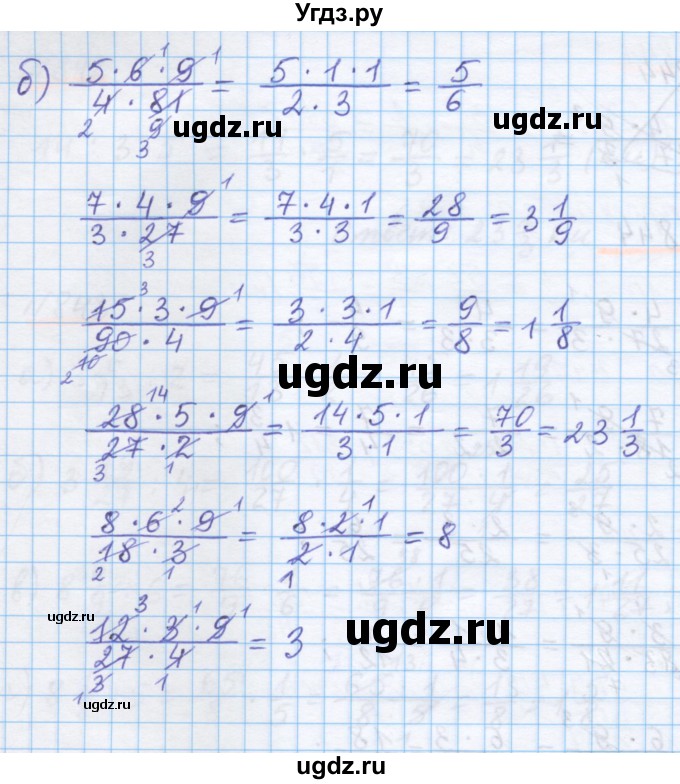 Угдз.ру
б) (5 · 6 · 9)/(4 · 81) = (5 · 1 · 1)/(2 · 3) = 5/6
1 1
2 9
3
ugdz.ru ugdz.ru
(7 · 4 · 9)/(3 · 27) = (7 · 4 · 1)/(3 · 3) = 28/9 = 3 1/9
1
3
844
(15 · 3 · 9)/(90 · 4) = (3 · 3 · 1)/(2 · 4) = 9/8 = 1 1/8
3 1
2 10
ugdz.ru
(28 · 5 · 9)/(27 · 2) = (14 · 5 · 1)/(3 · 1) = 70/3 = 23 1/3
14 1
3 1
(8 · 6 · 9)/(18 · 3) = (8 · 2 · 1)/(2 · 1) = 8
2 1 1
2 1 1
ugdz.ru
(12 · 3 · 9)/(27 · 4) = 3
3 1 1
3 1
1
ugdz.ru
ugdz.ru
ugdz.ru